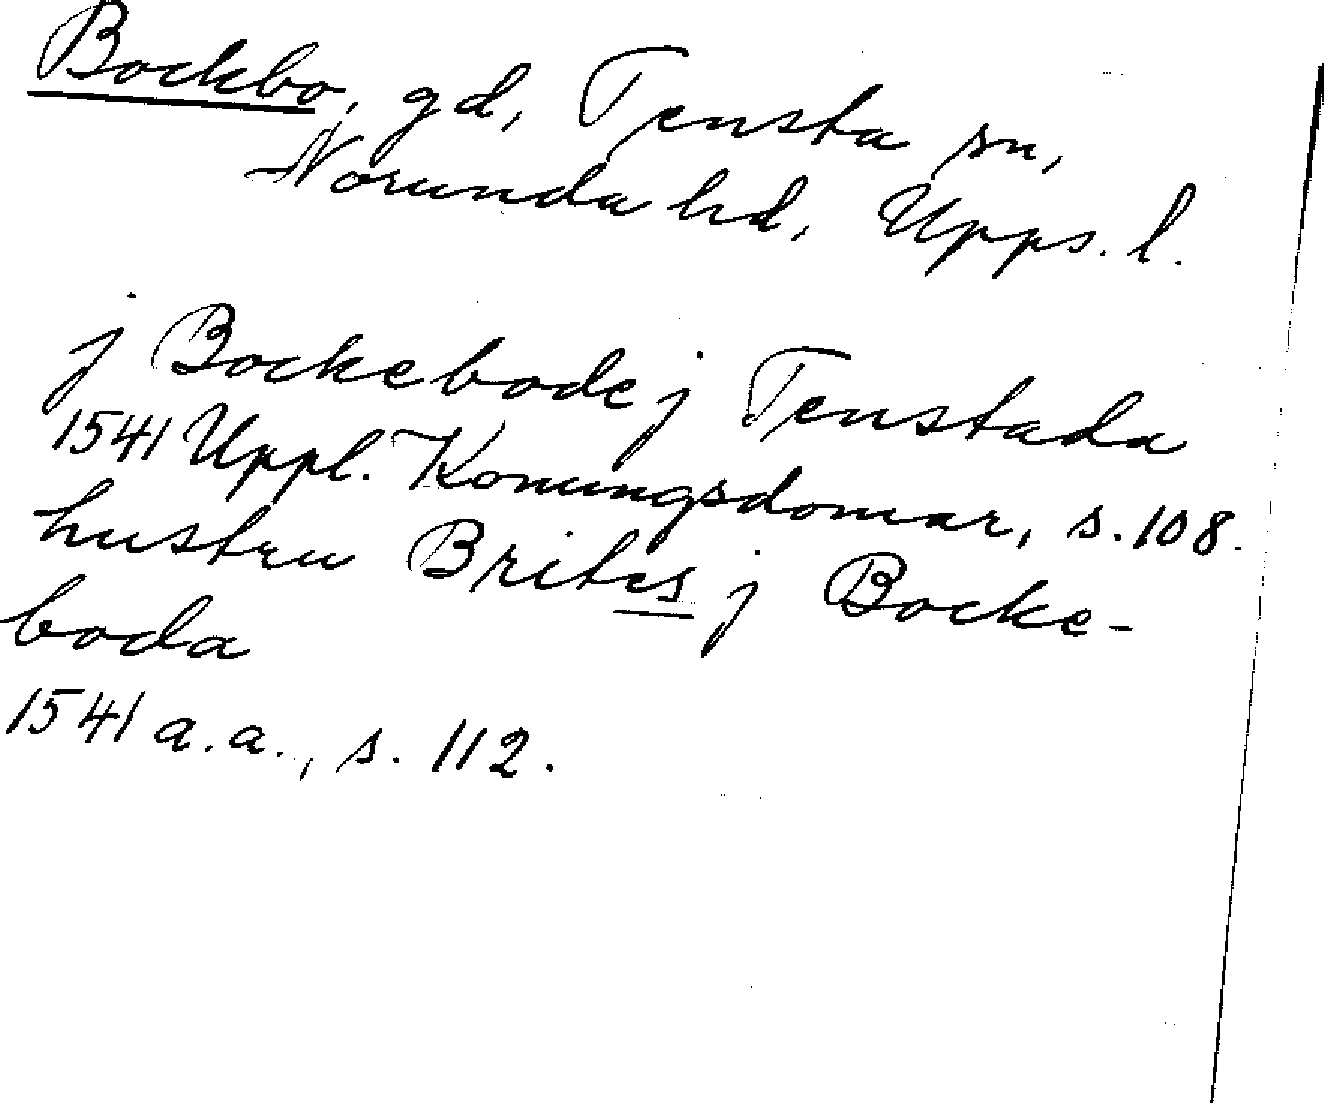 Bockbo, gd, Tensta sn,
Norunda hd, Upps. l.
j Bockebode j Tenstada
1541 Uppl. Konungsdomar, s. 108.
hustru Brites j Bocke-
boda
1541 a.a., s. 112.